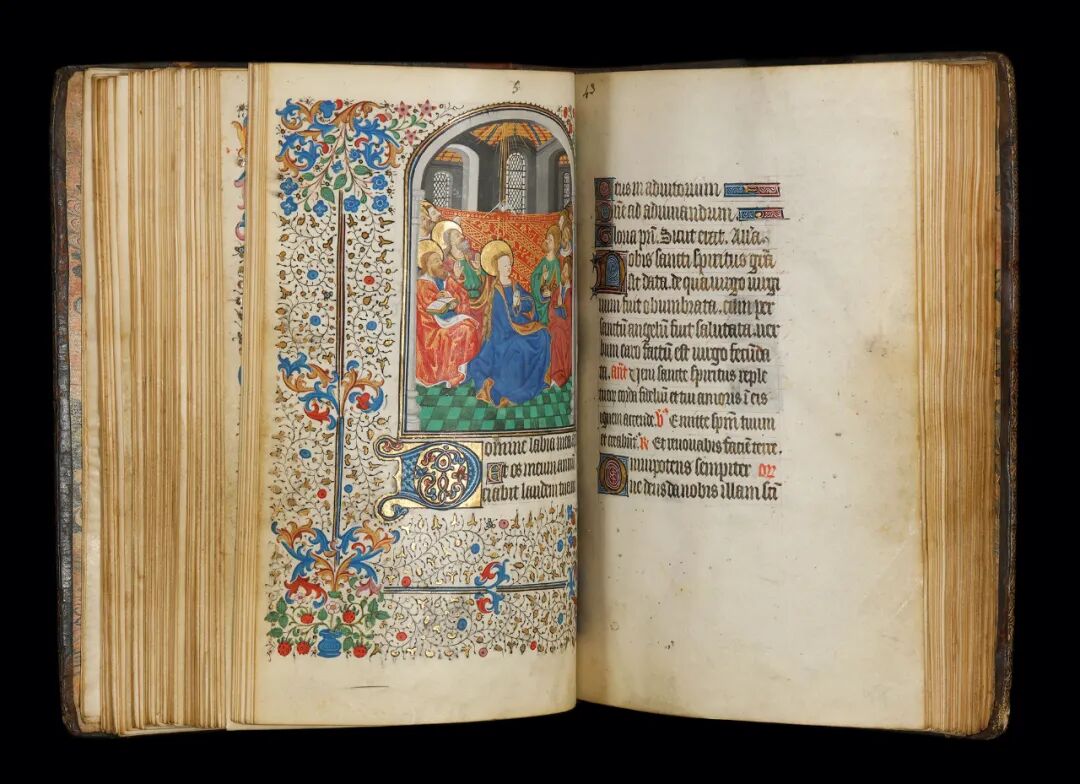 5
43
Domine labia mea
Et os meum annū
ciabit laudem tuam
Deus in adiutorium
Dñe ad adiuuandum
Gloria pri. Sicut erat. Alla
Nobis sancti spiritus grā
sit data. de qua uirgo uirgi
num fuit obumbrata. cum per
sanctū angelū fuit salutata. uer
bum caro factū est uirgo fecūda
ta. añt Veni sancte spiritus reple
tuor corda fideliū et tui amoris ī eis
ignem accende. Emitte spm tuum
et creabūt. Et renouabis faciē terre.
Omnipotens sempiter
ne deus da nobis illam sci